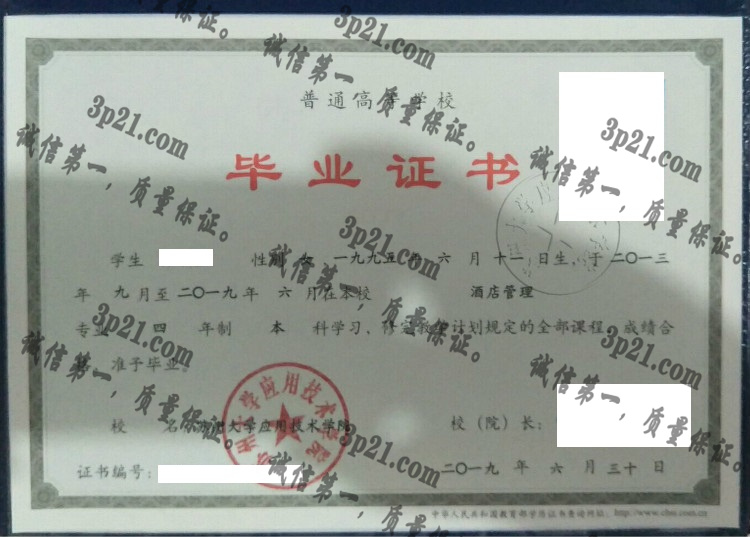 普通高等学校
毕业证书
学生 性别 女 一九九五年 六 月 十一 日生，于 二〇一三
年 九 月至 二〇一九 年 六 月在本校 酒店管理
专业 四 年制 本 科学习，修完教学计划规定的全部课程，成绩合
格，准予毕业。
校 名：苏州大学应用技术学院
校（院）长：
证书编号：
二〇一九 年 六 月 三十 日
中华人民共和国教育部学历证书查询网址：http://www.chsi.com.cn
苏州大学应用技术学院
3p21.com
诚信第一，质量保证。
3p21.com
诚信第一，质量保证。
3p21.com
诚信第一，质量保证。
3p21.com
诚信第一，质量保证。
3p21.com
诚信第一，质量保证。
3p21.com
诚信第一，质量保证。
3p21.com
诚信第一，质量保证。
质量保证。